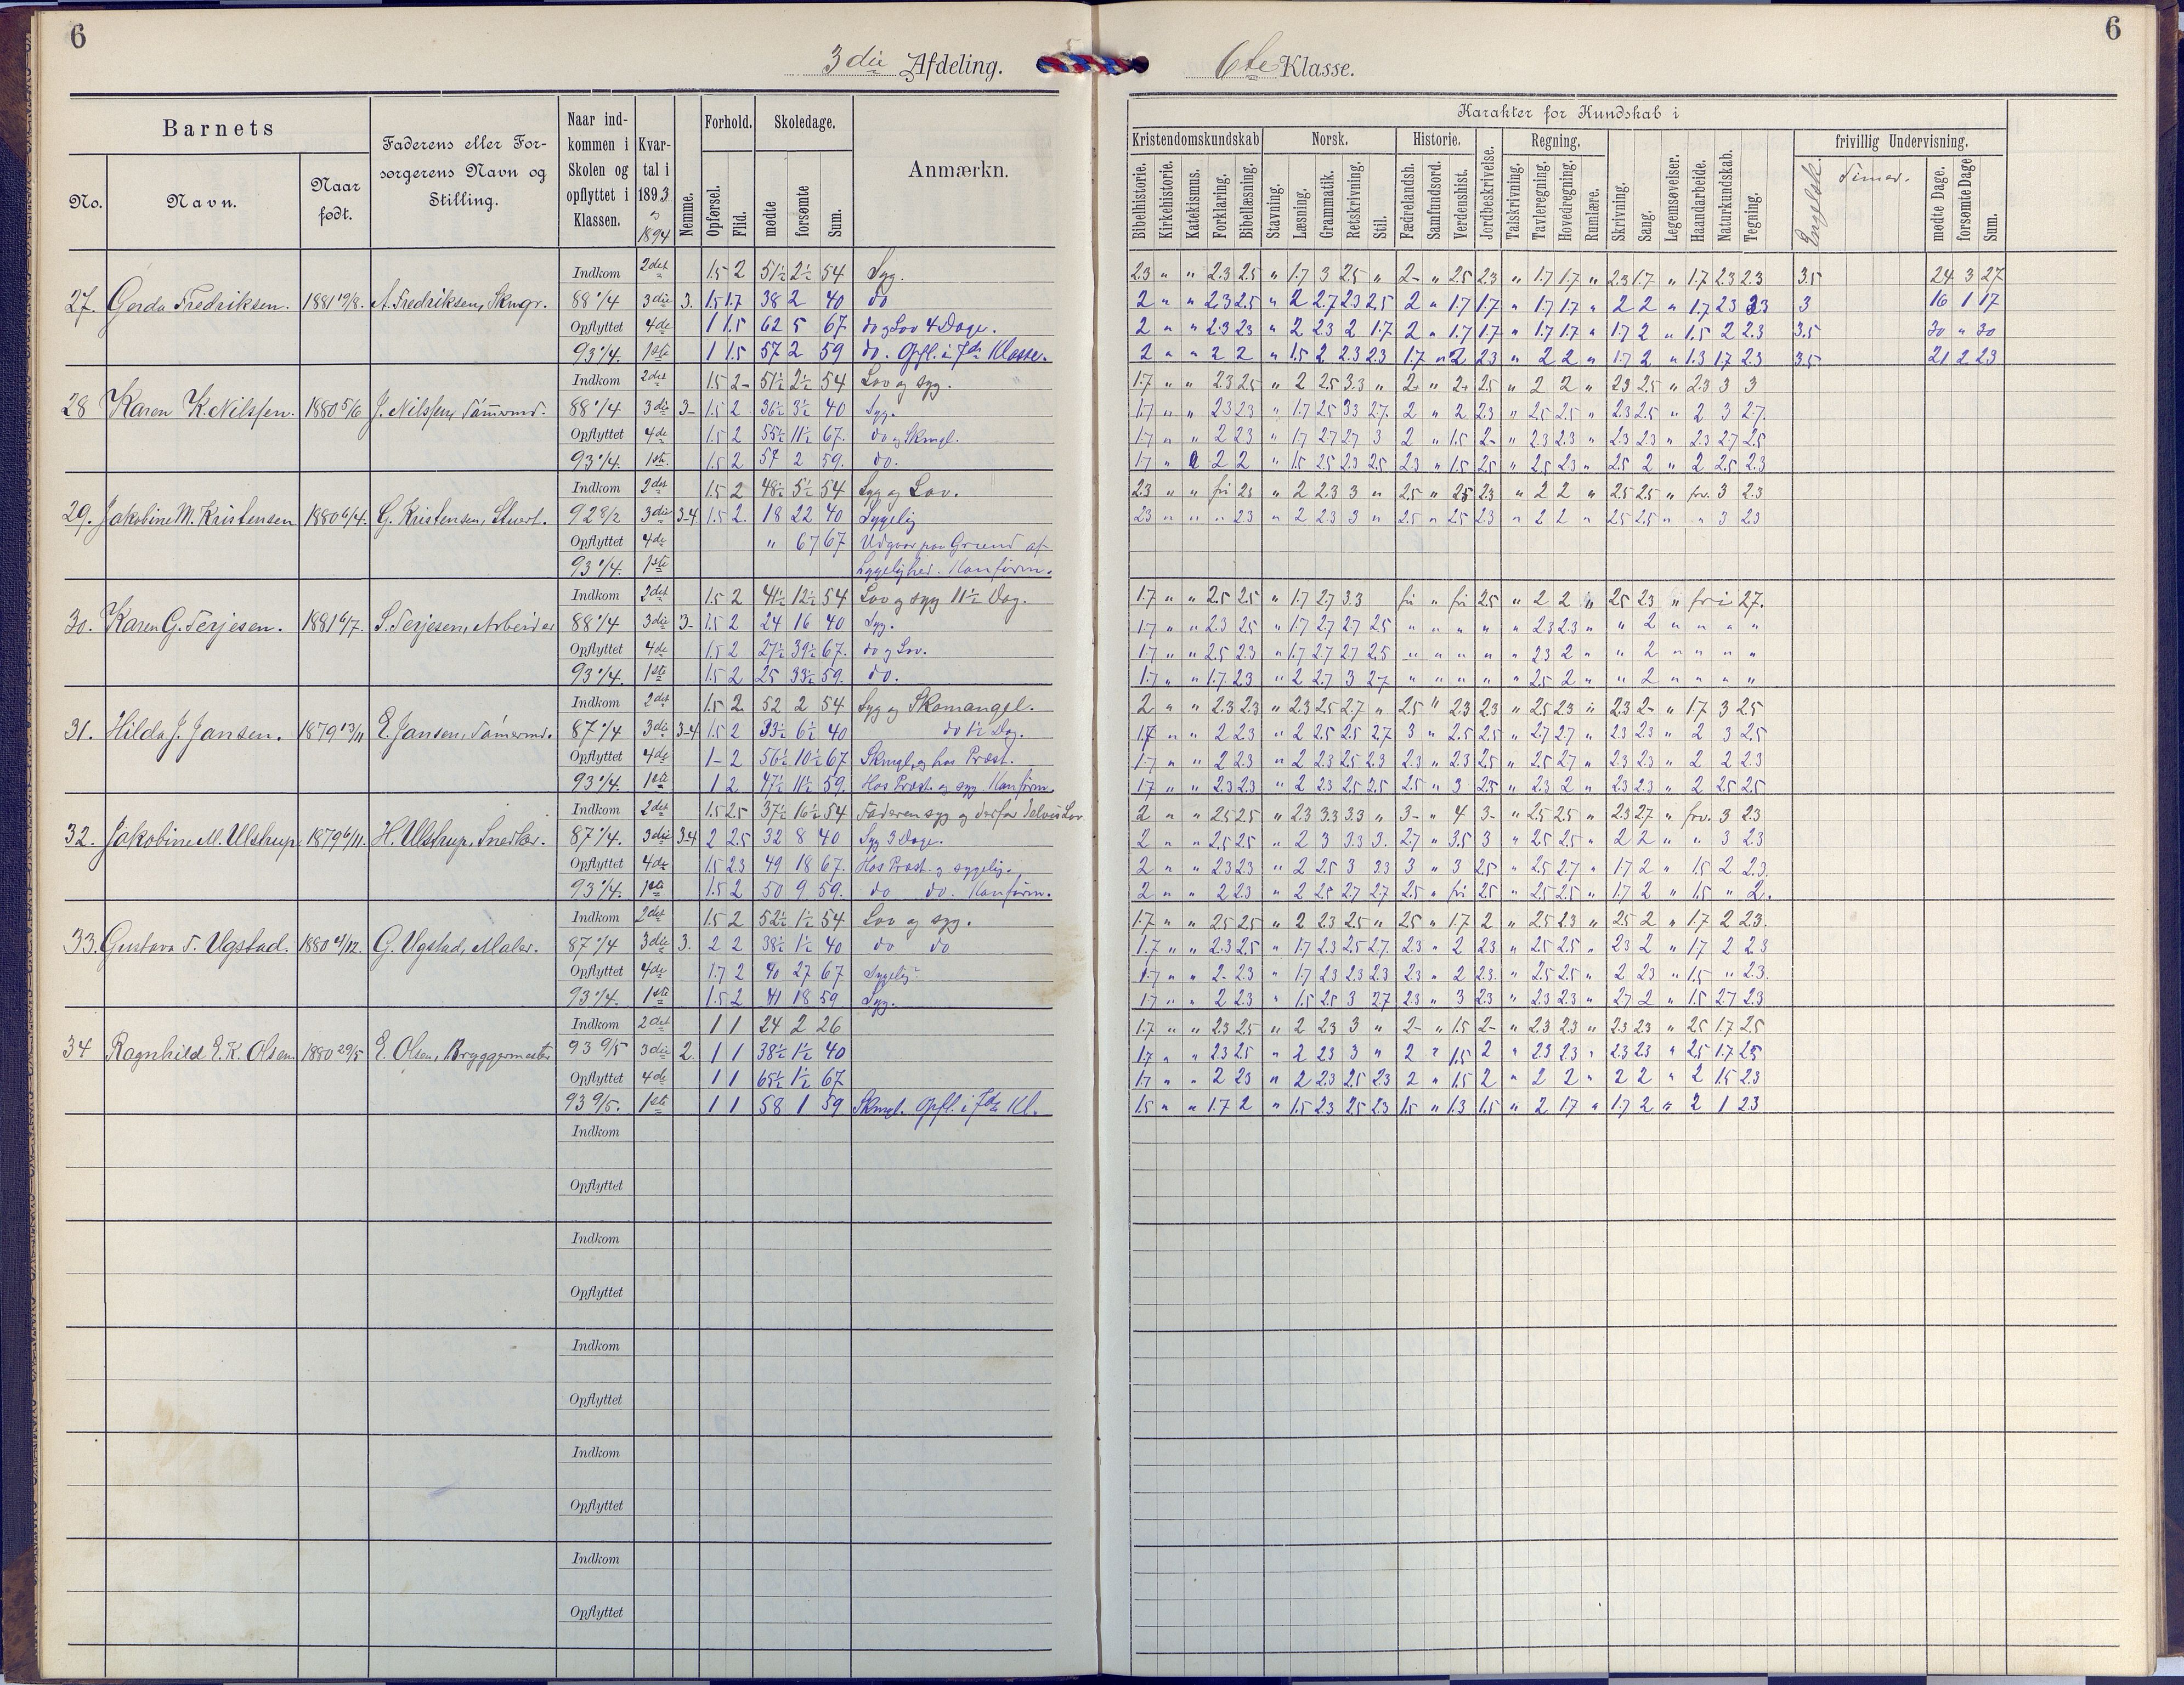 6
3die Afdeling.
Barnets
Faderens eller Forsørgerens Navn og Stilling.
Naar indkommen i Skolen og opflyttet i Klassen.
Kvartal i 1893 og 1894
Nemme.
Forhold.
Skoledage.
Anmærkn.
No.
Navn.
Naar født.
Opførsel.
Flid.
mødte
forsømte
Sum.
Indkom 2det 1.5 2 51½ 2½ 54 Syg.
27. Gerda Fredriksen. 1881 19/8. A. Fredriksen, Skmgr. 88 1/4 3die 3. 1.5 1.7 38 2 40 do
Opflyttet 4de 1 1.5 62 5 67 do og Lov 4 Dage.
93 1/4. 1ste 1 1.5 57 2 59 do. Opfl. i 7de Klasse.
Indkom 2det 1.5 2- 51½ 2½ 54 Lov og syg.
28 Karen K. Nilssen. 1880 5/6 J. Nilssen, Tømmermd. 88 1/4 3die 3- 1.5 2 36½ 3½ 40 Syg.
Opflyttet 4de 1.5 2 55½ 11½ 67. do og Skmgl.
93 1/4. 1ste. 1.5 2 57 2 59. do.
Indkom 2det 1.5 2 48½ 5½ 54 Syg og Lov.
29. Jakobine M. Kristensen 1880 6/4. G. Kristensen, Stuert. 92 8/2 3die 3-4 1.5 2. 18 22 40 Sygelig
Opflyttet 4de " 67 67 Udgaar paa Grund af
93 1/4. 1ste Sygelighed. Konfirm.
Indkom 2det 1.5 2 41½ 12½ 54 Lov og syg 11½ Dag.
30. Karen G. Terjesen. 1881 6/7. S. Terjesen, Arbeider 88 1/4 3die 3- 1.5 2 24 16 40 Syg.
Opflyttet 4de 1.5 2 27½ 39½ 67. do og Lov.
93 1/4. 1ste 1.5 2 25 33½ 59. do.
Indkom 2det 1.5 2 52 2 54 Syg og Skomangel.
31. Hilda J. Jansen. 1879 13/11 E. Jansen, Tømermd. 87 1/4 3die 3-4 1.5 2 33½ 6½ 40 do 1½ Dag.
Opflyttet 4de 1- 2 56½ 10½ 67 Skmgl. og hos Præst.
93 1/4. 1ste 1 2 47½ 11½ 59. Hos Præst. og syg. Konfirm.
Indkom 2det 1.5 2.5 37½ 16½ 54 Faderen syg og derfor delvis Lov.
32. Jakobine M. Ulstrup 1879 6/11. H. Ulstrup, Snedker. 87 1/4. 3die 3-4 2 2.5 32 8 40 Syg 3 Dage.
Opflyttet 4de 1.5 2.3 49 18 67. Hos Præst. og sygelig.
93 1/4. 1ste 1.5 2 50 9 59. do do. Konfirm.
Indkom 2det 1.5 2 52½ 1½ 54 Lov og syg.
33. Gustava T. Ugstad. 1880 4/12. G. Ugstad, Maler. 87 1/4 3die 3. 2 2 38½ 1½ 40 do do
Opflyttet 4de 1.7 2 40 27 67 Sygelig
93 1/4. 1ste 1.5 2 41 18 59 Syg.
Indkom 2det 1 1 24 2 26
34 Ragnhild E. K. Olsen 1880 29/5 E. Olsen, Bryggermester 93 9/5 3die 2. 1 1 38½ 1½ 40
Opflyttet 4de 1 1 65½ 1½ 67
93 9/5. 1ste 1 1 58 1 59 Skmgl. Opfl. i 7de Kl.
Indkom
Opflyttet
Indkom
Opflyttet
Indkom
Opflyttet
Indkom
Opflyttet
Indkom
Opflyttet
6
6te Klasse.
Karakter for Kundskab i
Kristendomskundskab
Norsk.
Historie.
Jordbeskrivelse.
Regning.
frivillig Undervisning.
Bibelhistorie.
Kirkehistorie.
Katekismus.
Forklaring.
Bibellæsning.
Stavning.
Læsning.
Grammatik.
Retskrivning.
Stil.
Fædrelandsh.
Samfundsord.
Verdenshist.
Talskrivning.
Tavleregning.
Hovedregning.
Rumlære.
Skrivning.
Sang.
Legemsøvelser.
Haandarbeide.
Naturkundskab.
Tegning.
Engelsk.
Timer.
mødte Dage.
forsømte Dage
Sum.
2.3 " " 2.3 2.5 " 1.7 3 2.5 " 2- " 2.5 2.3 " 1.7 1.7 " 2.3 1.7 " 1.7 2.3 2.3 3.5 24 3 27
2 " " 2.3 2.5 " 2 2.7 2.3 2.5 2 " 1.7 1.7 " 1.7 1.7 " 2 2 " 1.7 2.3 2.3 3 16 1 17
2 " " 2.3 2.3 " 2 2.3 2 1.7 2 " 1.7 1.7 " 1.7 1.7 " 1.7 2 " 1.5 2 2.3 3.5 30 " 30
2 " " 2 2 " 1.5 2 2.3 2.3 1.7 " 2 2.3 " 2 2 " 1.7 2 " 1.3 1.7 2.3 3.5 21 2 23
1.7 " " 2.3 2.5 " 2 2.5 3.3 " 2 " 2 2.5 " 2 2 " 2.3 2.5 " 2.3 3 3
1.7 " " 2.3 2.3 " 1.7 2.5 3.3 2.7. 2 " 2 2.3 " 2.5 2.5 " 2.3 2.5 " 2 3 2.7.
1.7 " " 2 2.3 " 1.7 2.7 2.7 3 2 " 1.5 2- " 2.3 2.3 " 2.3 2.3 " 2.3 2.7 2.5
1.7 " 2 2 " 1.5 2.5 2.3 2.5 2.3 " 1.5 2.5 " 2.5 2.3 " 2.5 2 " 2 2.5 2.3
2.3 " " fri 2.3 " 2 2.3 3 " 2.5 " 2.5 2.3 " 2 2 " 2.5 2.5 " frv. 3 2.3
2.3 " " " 2.3 " 2 2.3 3 " 2.5 " 2.5 2.3 " 2 2 " 2.5 2.5 " " 3 2.3
1.7 " " 2.5 2.5 " 1.7 2.7 3.3 fri " fri 2.5 " 2 2 " 2.5 2.3 " fri 2.7.
1.7 " " 2.3 2.5 " 1.7 2.7 2.7 2.5 " " " " " 2.3 2.3 " " 2 " " " "
1.7 " " 2.5 2.3 " 1.7 2.7 2.7 2.5 " " " " " 2.3 2 " " 2 " " " "
1.7 " " 1.7 2.3 " 2 2.7 3 2.7 " " " " " 2.5 2 " " 2 " " " "
2 " " 2.3 2.3 " 2.3 2.5 2.7 " 2.5 " 2.3 2.3 " 2.5 2.3 " 2.3 2- " 1.7 3 2.5
1.7 " " 2 2.3 " 2 2.5 2.5 2.7 3 " 2.5 2.5 " 2.7 2.7 " 2.3 2.3 " 2 3 2.5
1.7 " " 2 2.3 " 2 2.3 2.5 2.3 2.3 " 2.3 2.5 " 2.5 2.7 " 2.3 2.3 " 2 2 2.3
1.7 " " 2.3 2.3 " 2 2.3 2.5 2.5 2.5 " 3 2.5 " 2.3 2 " 2.3 2.3 " 2 2.5 2.5
2 " " 2.5 2.5 " 2.3 3.3 3.3 " 3- " 4 3- " 2.5 2.5 " 2.3 2.7 " frv. 3 2.3
2 " " 2.5 2.5 " 2 3 3.3 3. 2.7 " 3.5 3 " 2.5 2.5 " 2 2 " " 3 2.3
2 " " 2.3 2.3 " 2 2.5 3 3.3 3 " 3 2.5 " 2.5 2.7 " 1.7 2 " 1.5 2 2.3.
2 " " 2 2.3 " 2 2.5 2.7 2.7 2.5 " fri 2.5 " 2.5 2.5 " 1.7 2 " 1.5 " 2.
1.7 " " 2.5 2.5 " 2 2.3 2.5 " 2.5 " 1.7 2 " 2.5 2.3 " 2.5 2 " 1.7 2 2.3.
1.7 " " 2.3 2.5 " 1.7 2.3 2.5 2.7. 2.3 " 2 2.3 " 2.5 2.5 " 2.3 2 " 1.7 2 2.3
1.7 " " 2- 2.3 " 1.7 2.3 2.3 2.3 2.3 " 2 2.3. " 2.5 2.5 " 2 2.3 " 1.5 " 2.3.
1.7 " " 2 2.3 " 1.5 2.5 3 2.7 2.3 " 3 2.3 " 2.3 2.3 " 2.7 2 " 1.5 2.7 2.3
1.7 " " 2.3 2.5 " 2 2.3 3 " 2- " 1.5 2- " 2.3 2.3 " 2.3 2.3 " 2.5 1.7 2.5
1.7 " " 2.3 2.5 " 2 2.3 3 " 2 " 1.5 2 " 2.3 2.3 " 2.3 2.3 " 2.5 1.7 2.5
1.7 " " 2 2.3 " 2 2.3 2.5 2.3 2 " 1.5 2 " 2 2 " 2 2 " 2 1.5 2.3
1.5 " " 1.7 2 " 1.5 2.3 2.5 2.3 1.5 " 1.3 1.5 " 2 1.7 " 1.7 2 " 2 1 2.3